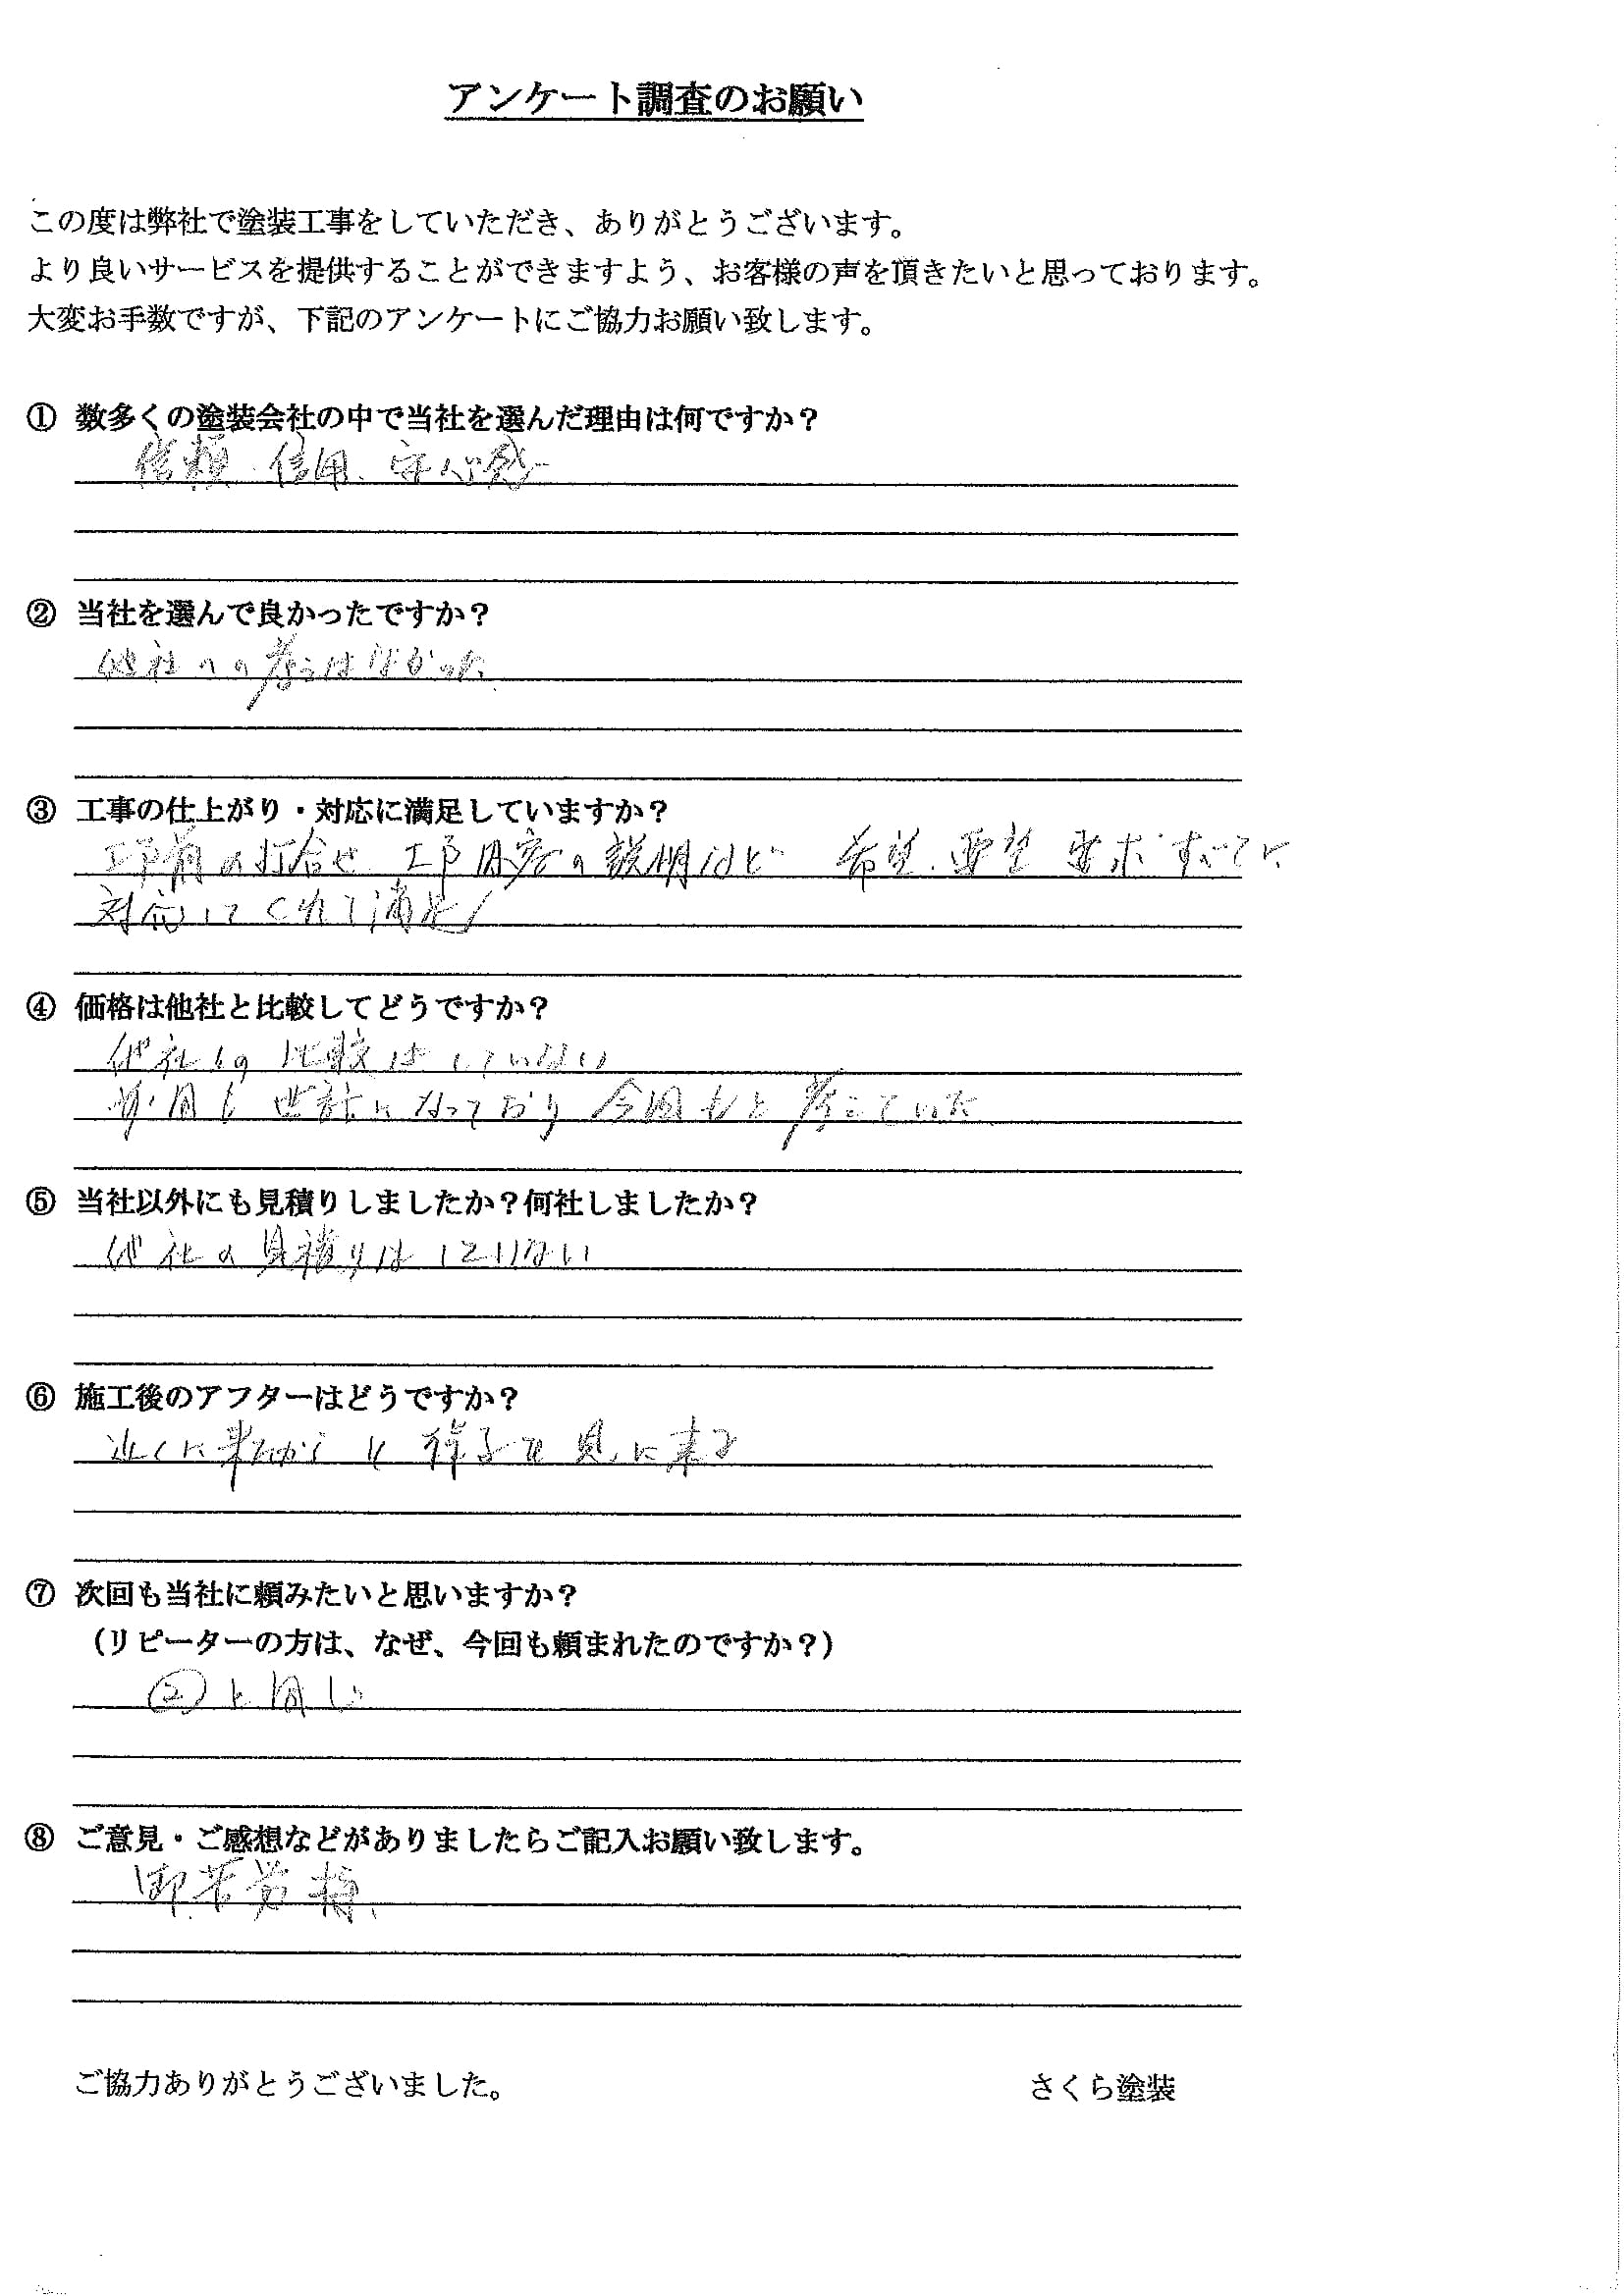 アンケート調査のお願い
この度は弊社で塗装工事をしていただき、ありがとうございます。
より良いサービスを提供することができますよう、お客様の声を頂きたいと思っております。
大変お手数ですが、下記のアンケートにご協力お願い致します。
① 数多くの塗装会社の中で当社を選んだ理由は何ですか？
信頼、信用、安心感
② 当社を選んで良かったですか？
他社への考えはなかった
③ 工事の仕上がり・対応に満足していますか？
工事前の打合せ 工事内容の説明など 希望、要望 要求 すべてに
対応してくれて満足!
④ 価格は他社と比較してどうですか？
他社との比較はしていない
前回も世話になっており 今回もと考えていた
⑤ 当社以外にも見積りしましたか？何社しましたか？
他社の見積りはしていない
⑥ 施工後のアフターはどうですか？
近くに来たからと様子を見に来る
⑦ 次回も当社に頼みたいと思いますか？
（リピーターの方は、なぜ、今回も頼まれたのですか？）
②と同じ
⑧ ご意見・ご感想などがありましたらご記入お願い致します。
御苦労様、
ご協力ありがとうございました。 さくら塗装